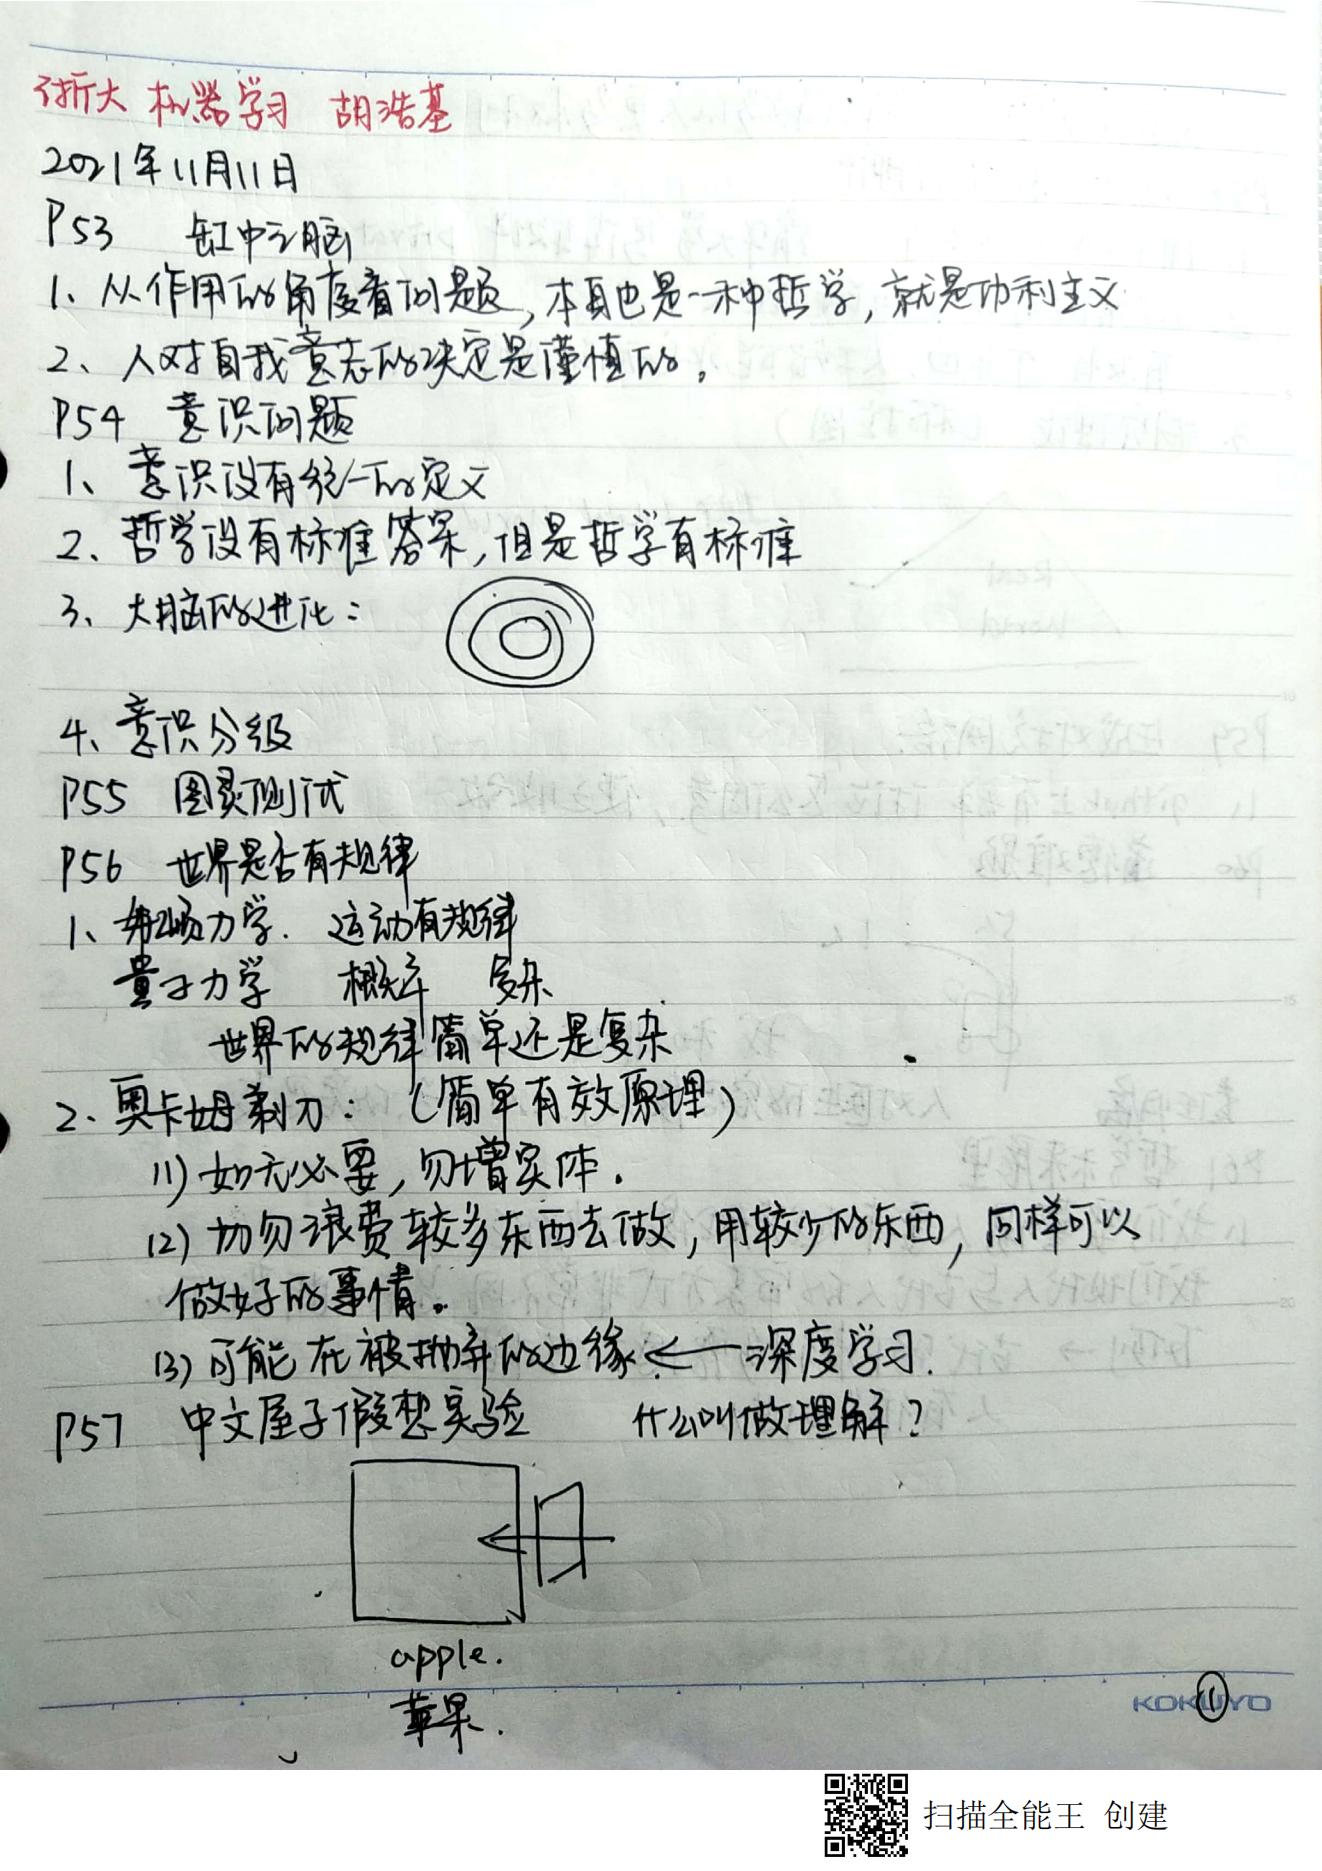 浙大 机器学习 胡浩基
2021年11月11日
P53 缸中之脑
1、从作用的角度看问题,本身也是一种哲学,就是功利主义
2、人对自我意志的决定是谨慎的。
P54 意识问题
1、意识没有统一的定义
2、哲学没有标准答案,但是哲学有标准
3、大脑的进化:
4、意识分级
P55 图灵测试
P56 世界是否有规律
1、牛顿力学. 运动有规律
量子力学 概率 复杂
世界的规律简单还是复杂
2、奥卡姆剃刀: (简单有效原理)
(1) 如无必要,勿增实体.
(2) 切勿浪费较多东西去做,用较少的东西,同样可以
做好的事情。
(3) 可能在被抛弃的边缘 ← 深度学习.
P57 中文屋子假想实验 什么叫做理解?
apple.
苹果.
KOKUYO
11
扫描全能王 创建